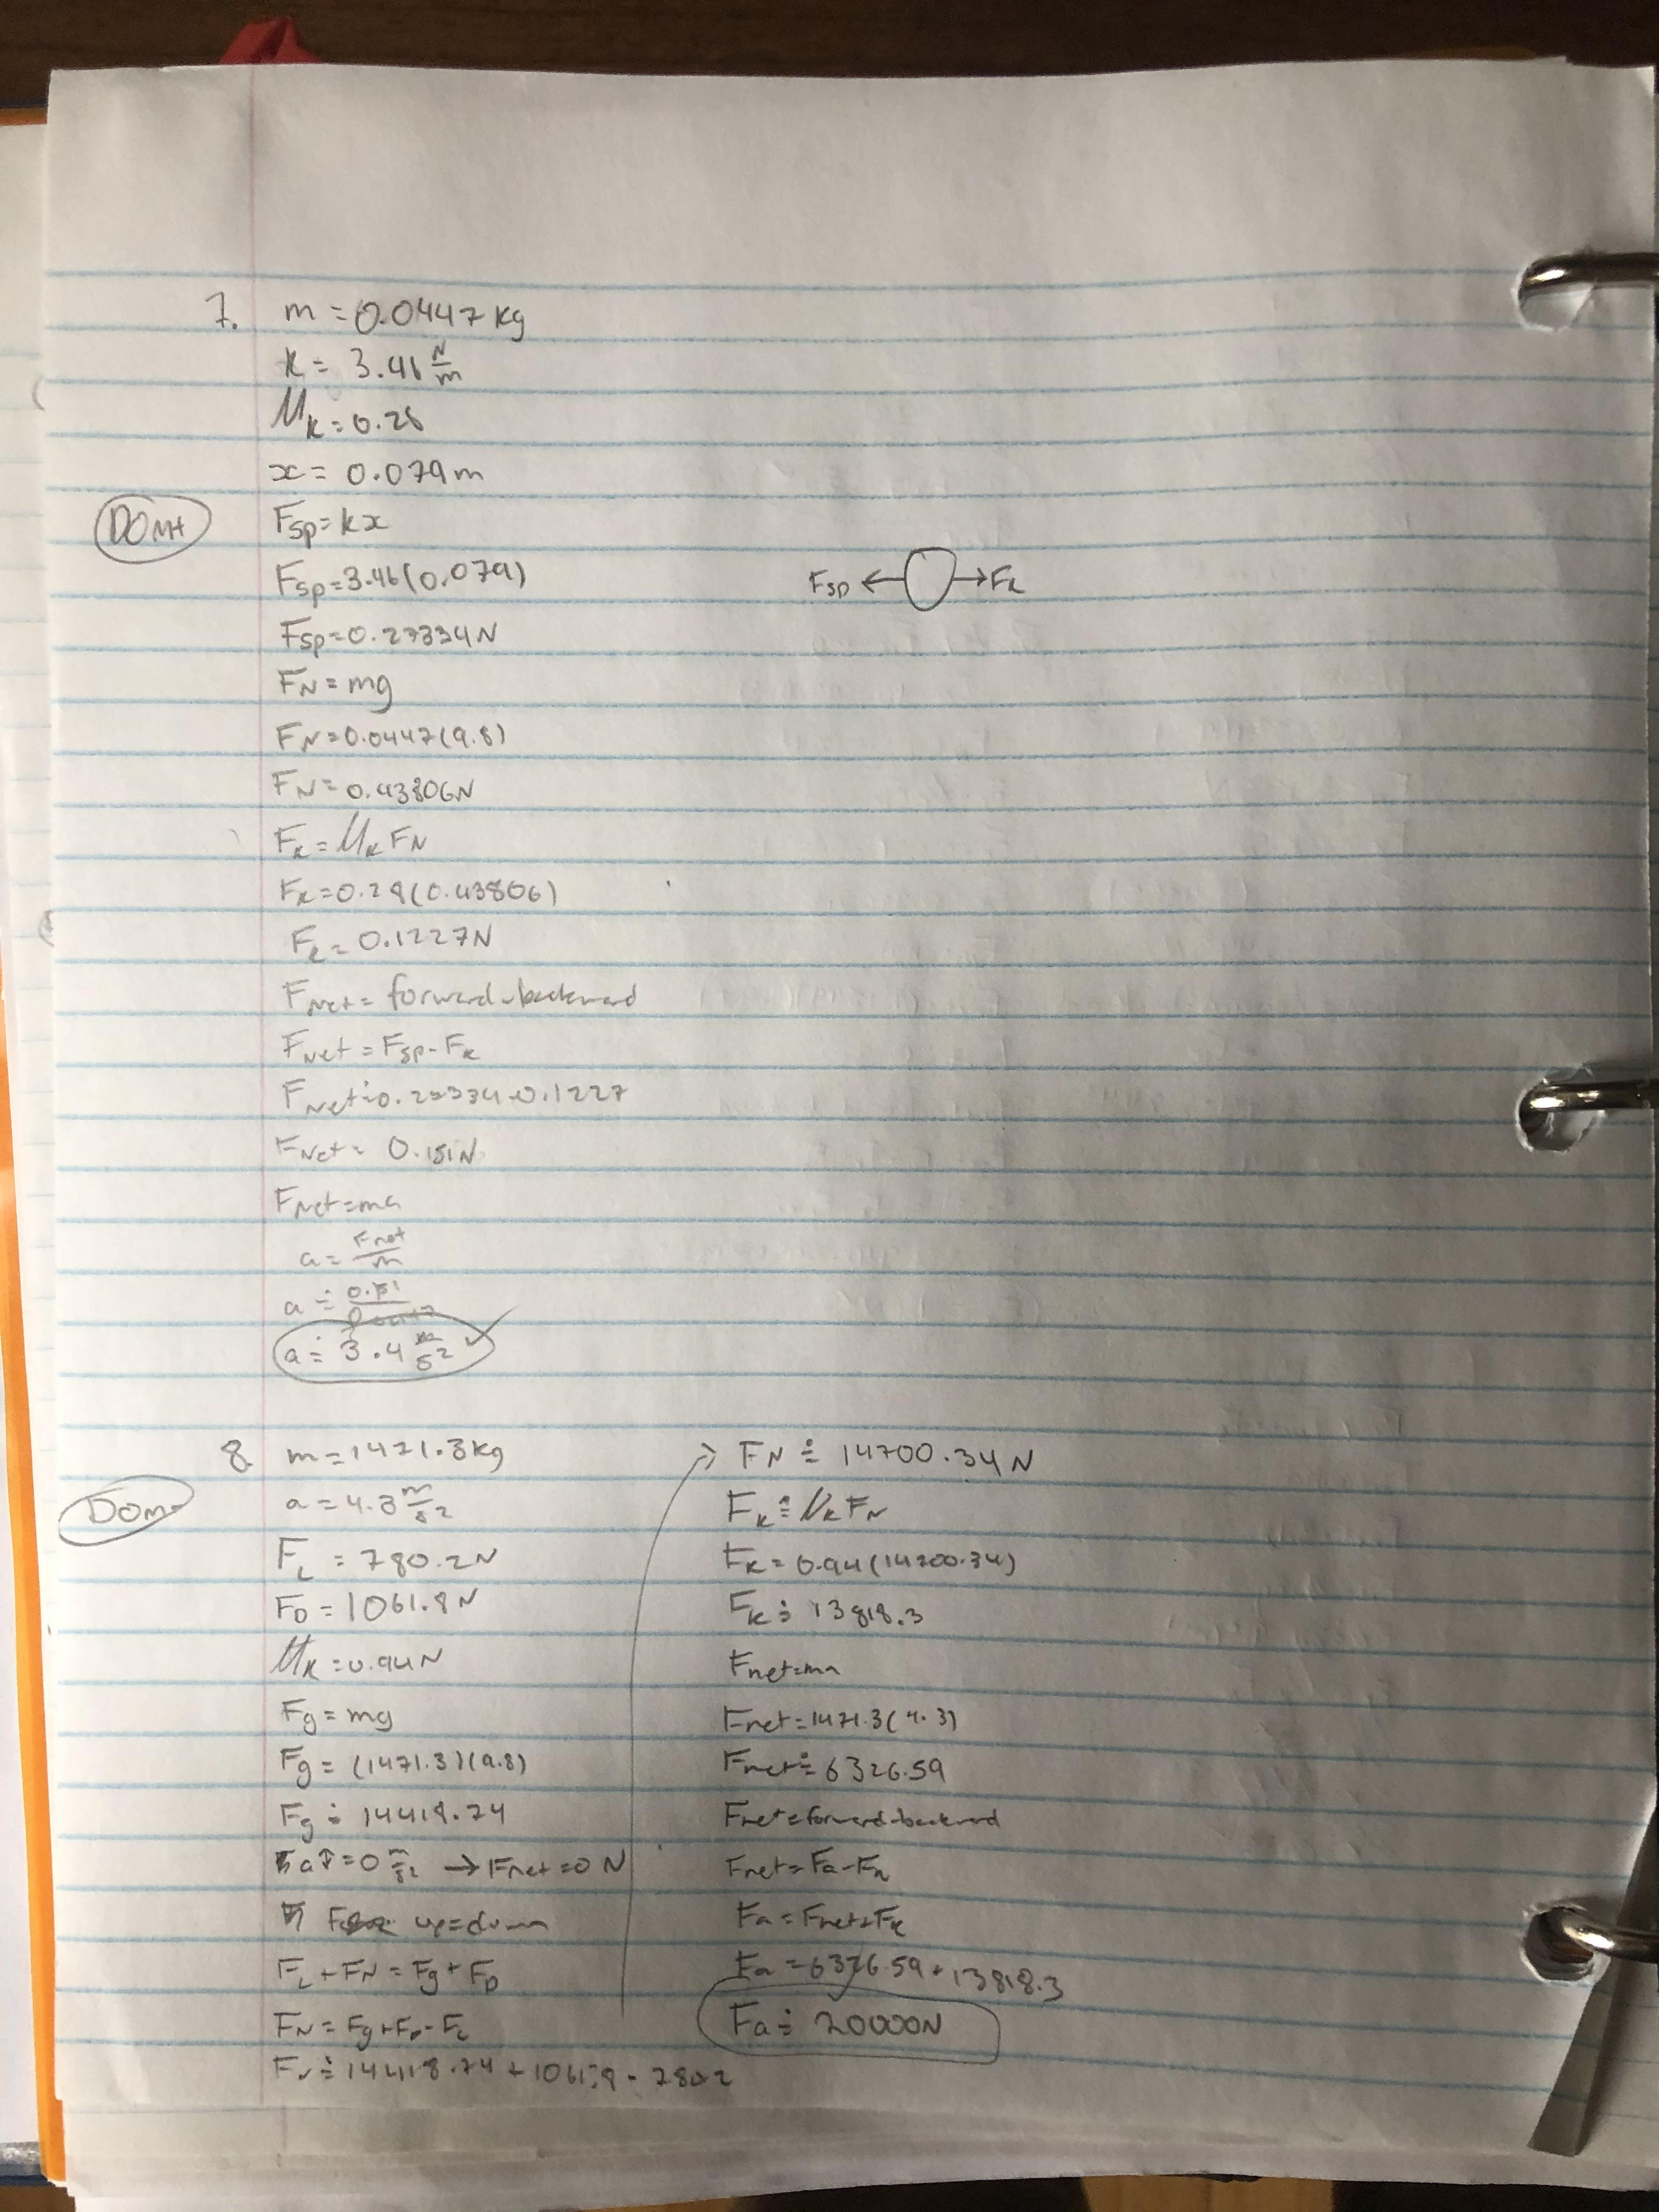 7. m = 0.0447 kg
k = 3.46 N/m
μk = 0.28
x = 0.079 m
Fsp = kx
Fsp = 3.46(0.079)
Fsp ← → Fk
Fsp = 0.27334 N
FN = mg
FN = 0.0447(9.8)
FN = 0.43806 N
Fk = μk FN
Fk = 0.28(0.43806)
Fk = 0.1227 N
Fnet = forward - backward
Fnet = Fsp - Fk
Fnet ≐ 0.27334 - 0.1227
Fnet = 0.151 N
Fnet = ma
a = Fnet/m
a ≐ 0.151/0.0447
a ≐ 3.4 m/s² ✓
8. m = 1471.3 kg
DOM
a = 4.3 m/s²
FL = 780.2 N
FD = 1061.8 N
μk = 0.94 N
Fg = mg
Fg = (1471.3)(9.8)
Fg ≐ 14418.74
a↑ = 0 m/s² → Fnet = 0 N
up = down
FL + FN = Fg + FD
FN = Fg + FD - FL
FN ≐ 14418.74 + 1061.8 - 780.2
→ FN ≐ 14700.34 N
Fk ≐ μk FN
Fk = 0.94(14700.34)
Fk ≐ 13818.3
Fnet = ma
Fnet = 1471.3(4.3)
Fnet ≐ 6326.59
Fnet = forward - backward
Fnet = Fa - Fk
Fa = Fnet + Fk
Fa = 6326.59 + 13818.3
Fa ≐ 20000 N